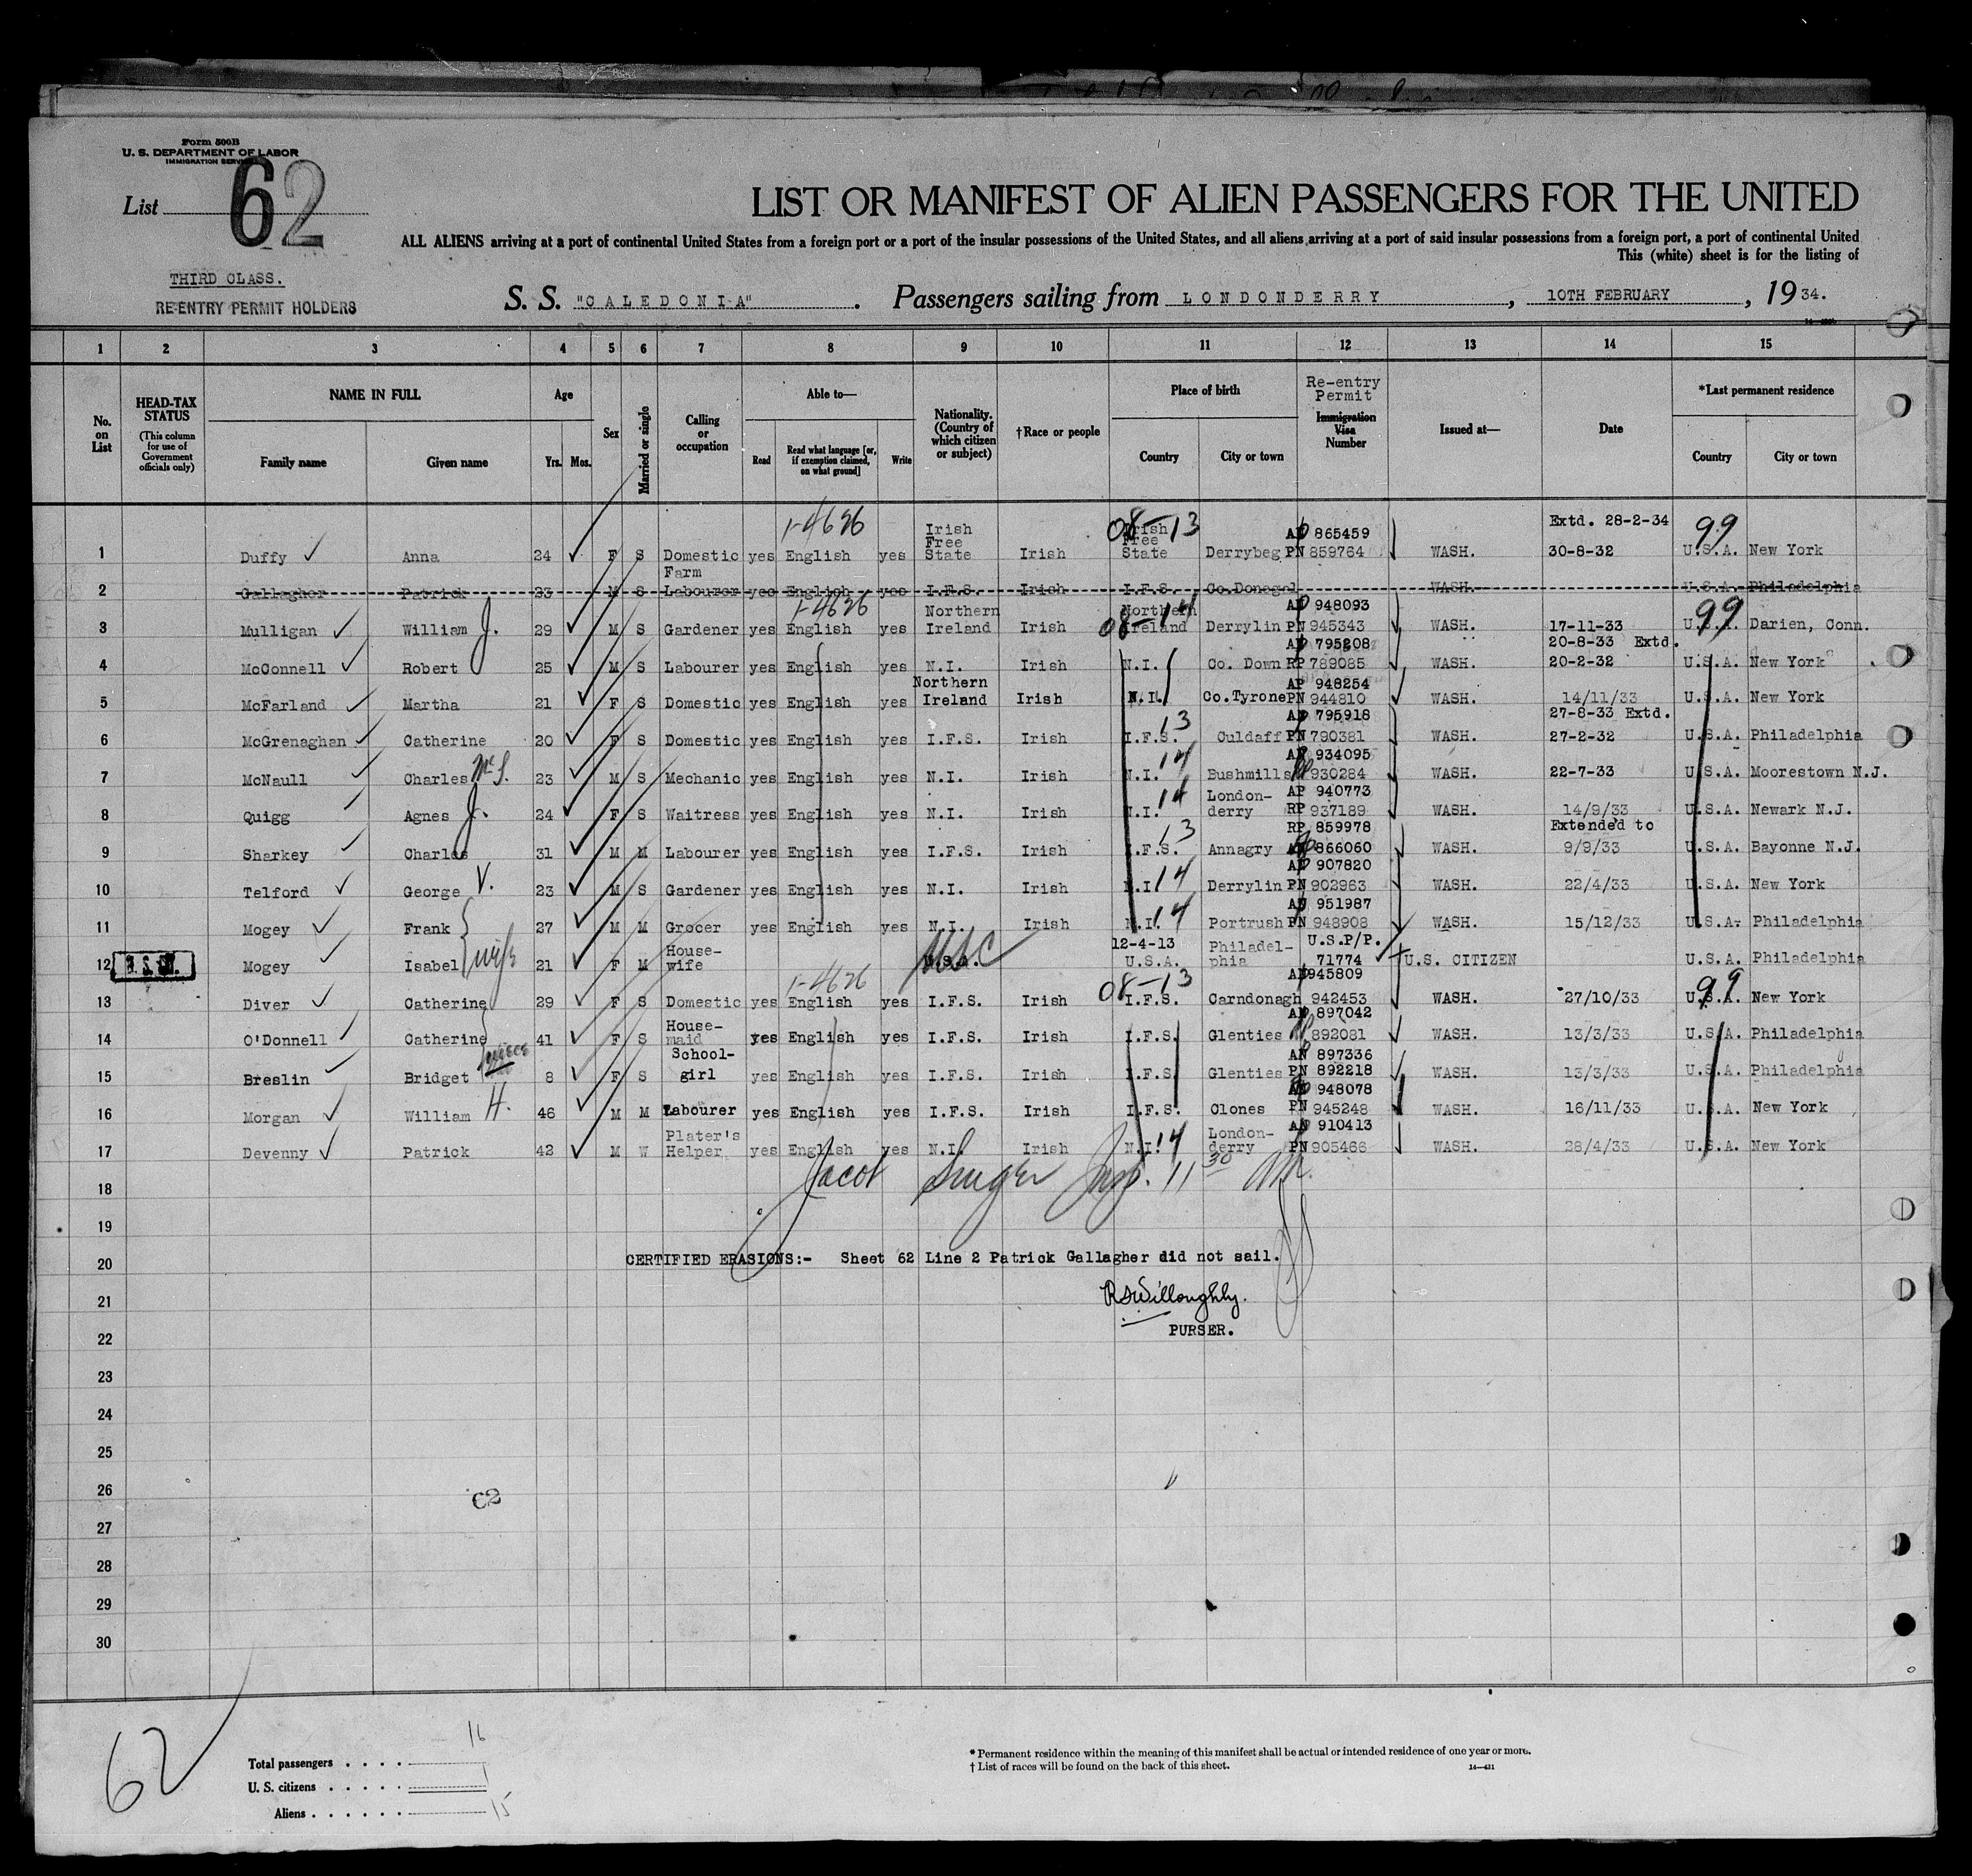 Form 500B
U. S. DEPARTMENT OF LABOR
IMMIGRATION SERVICE
List 62
LIST OR MANIFEST OF ALIEN PASSENGERS FOR THE UNITED
ALL ALIENS arriving at a port of continental United States from a foreign port or a port of the insular possessions of the United States, and all aliens arriving at a port of said insular possessions from a foreign port, a port of continental United
This (white) sheet is for the listing of
THIRD CLASS.
RE-ENTRY PERMIT HOLDERS
S. S. "CALEDONIA". Passengers sailing from LONDONDERRY, 10TH FEBRUARY, 1934.
1 2 3 4 5 6 7 8 9 10 11 12 13 14 15
No. on List
HEAD-TAX STATUS (This column for use of Government officials only)
NAME IN FULL
Family name Given name
Age
Yrs. Mos.
Sex
Married or single
Calling or occupation
Able to—
Read Read what language [or, if exemption claimed, on what ground] Write
Nationality. (Country of which citizen or subject)
†Race or people
Place of birth
Country City or town
Re-entry Permit
Immigration Visa Number
Issued at—
Date
*Last permanent residence
Country City or town
1-4626 08-13 99
1 Duffy Anna 24 F S Domestic yes English yes Irish Free State Irish Irish Free State Derrybeg 865459 PN 859764 WASH. Extd. 28-2-34 30-8-32 U.S.A. New York
2 Gallagher Patrick 23 M S Farm Labourer yes English yes I.F.S. Irish I.F.S. Co.Donegal WASH. U.S.A. Philadelphia
1-4626 08-14 99
3 Mulligan William J. 29 M S Gardener yes English yes Northern Ireland Irish Northern Ireland Derrylin 948093 PN 945343 WASH. 17-11-33 U.S.A. Darien, Conn.
4 McConnell Robert 25 M S Labourer yes English yes N.I. Irish N.I. Co. Down 795208 RP 789085 WASH. 20-8-33 Extd. 20-2-32 U.S.A. New York
5 McFarland Martha 21 F S Domestic yes English yes Northern Ireland Irish N.I. Co.Tyrone AP 948254 PN 944810 WASH. 14/11/33 U.S.A. New York
6 McGrenaghan Catherine 20 F S Domestic yes English yes I.F.S. Irish I.F.S. 13 Culdaff 795918 PN 790381 WASH. 27-8-33 Extd. 27-2-32 U.S.A. Philadelphia
7 McNaull Charles 23 M S Mechanic yes English yes N.I. Irish N.I. 14 Bushmills 934095 930284 WASH. 22-7-33 U.S.A. Moorestown N.J.
8 Quigg Agnes J. 24 F S Waitress yes English yes N.I. Irish N.I. 14 London-derry AP 940773 RP 937189 WASH. 14/9/33 U.S.A. Newark N.J.
9 Sharkey Charles 31 M M Labourer yes English yes I.F.S. Irish I.F.S. 13 Annagry RP 859978 866060 WASH. Extended to 9/9/33 U.S.A. Bayonne N.J.
10 Telford George V. 23 M S Gardener yes English yes N.I. Irish N.I. 14 Derrylin 907820 PN 902963 WASH. 22/4/33 U.S.A. New York
11 Mogey Frank 27 M M Grocer yes English yes N.I. Irish N.I. 14 Portrush 951987 PN 948908 WASH. 15/12/33 U.S.A. Philadelphia
12 Mogey Isabel wife 21 F M House-wife U.S.A. USC 12-4-13 U.S.A. Philadel-phia U.S.P/P. 71774 U.S. CITIZEN U.S.A. Philadelphia
1-4626 08-13 99
13 Diver Catherine 29 F S Domestic yes English yes I.F.S. Irish I.F.S. Carndonagh 945809 942453 WASH. 27/10/33 U.S.A. New York
14 O'Donnell Catherine 41 F S House-maid yes English yes I.F.S. Irish I.F.S. Glenties 897042 892081 WASH. 13/3/33 U.S.A. Philadelphia
15 Breslin Bridget niece 8 F S School-girl yes English yes I.F.S. Irish I.F.S. Glenties 897336 PN 892218 WASH. 13/3/33 U.S.A. Philadelphia
16 Morgan William H. 46 M M Labourer yes English yes I.F.S. Irish I.F.S. Clones 948078 PN 945248 WASH. 16/11/33 U.S.A. New York
17 Devenny Patrick 42 M W Plater's Helper yes English yes N.I. Irish N.I. 14 London-derry 910413 PN 905466 WASH. 28/4/33 U.S.A. New York
18 Jacob Singer Insp. 11 30
19
20 CERTIFIED ERASIONS:- Sheet 62 Line 2 Patrick Gallagher did not sail.
21 Willoughby.
22 PURSER.
23
24
25
26
62
27
28
29
30
62
Total passengers . . . . 16
U. S. citizens . . . . . 1
Aliens . . . . . . 15
* Permanent residence within the meaning of this manifest shall be actual or intended residence of one year or more.
† List of races will be found on the back of this sheet.
14—431